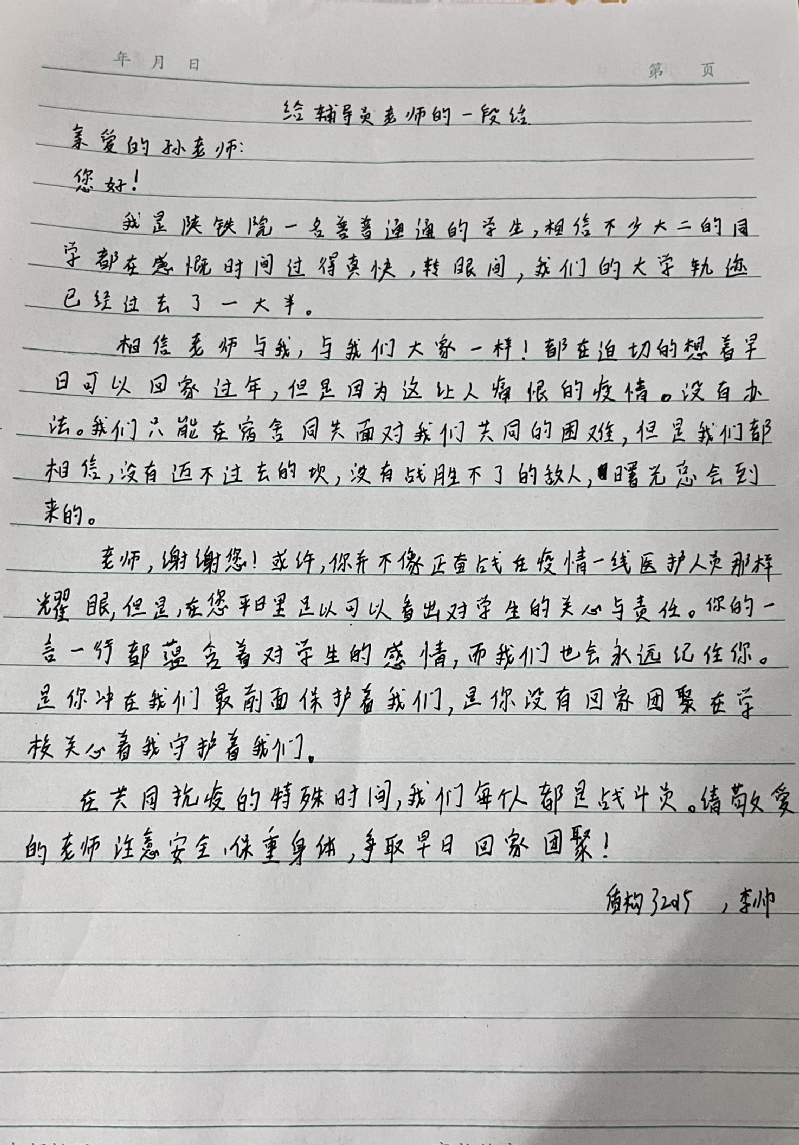 年 月 日
第 页
给辅导员老师的一段话
亲爱的孙老师:
您好!
我是陕铁院一名普普通通的学生,相信不少大二的同
学都在感慨时间过得真快,转眼间,我们的大学轨迹
已经过去了一大半。
相信老师与我,与我们大家一样!都在迫切的想着早
日可以回家过年,但是因为这让人痛恨的疫情。没有办
法。我们只能在宿舍同失面对我们共同的困难,但是我们都
相信,没有迈不过去的坎,没有战胜不了的敌人,曙光总会到
来的。
老师,谢谢您!或许,你并不像正奋战在疫情一线医护人员那样
耀眼,但是,在您平日里足以可以看出对学生的关心与责任。你的一
言一行都蕴含着对学生的感情,而我们也会永远记住你。
是你冲在我们最前面保护着我们,是你没有回家团聚在学
校关心着我守护着我们。
在共同抗疫的特殊时间,我们每个人都是战斗员。请敬爱
的老师注意安全、保重身体,争取早日回家团聚!
盾构3205 ,李帅